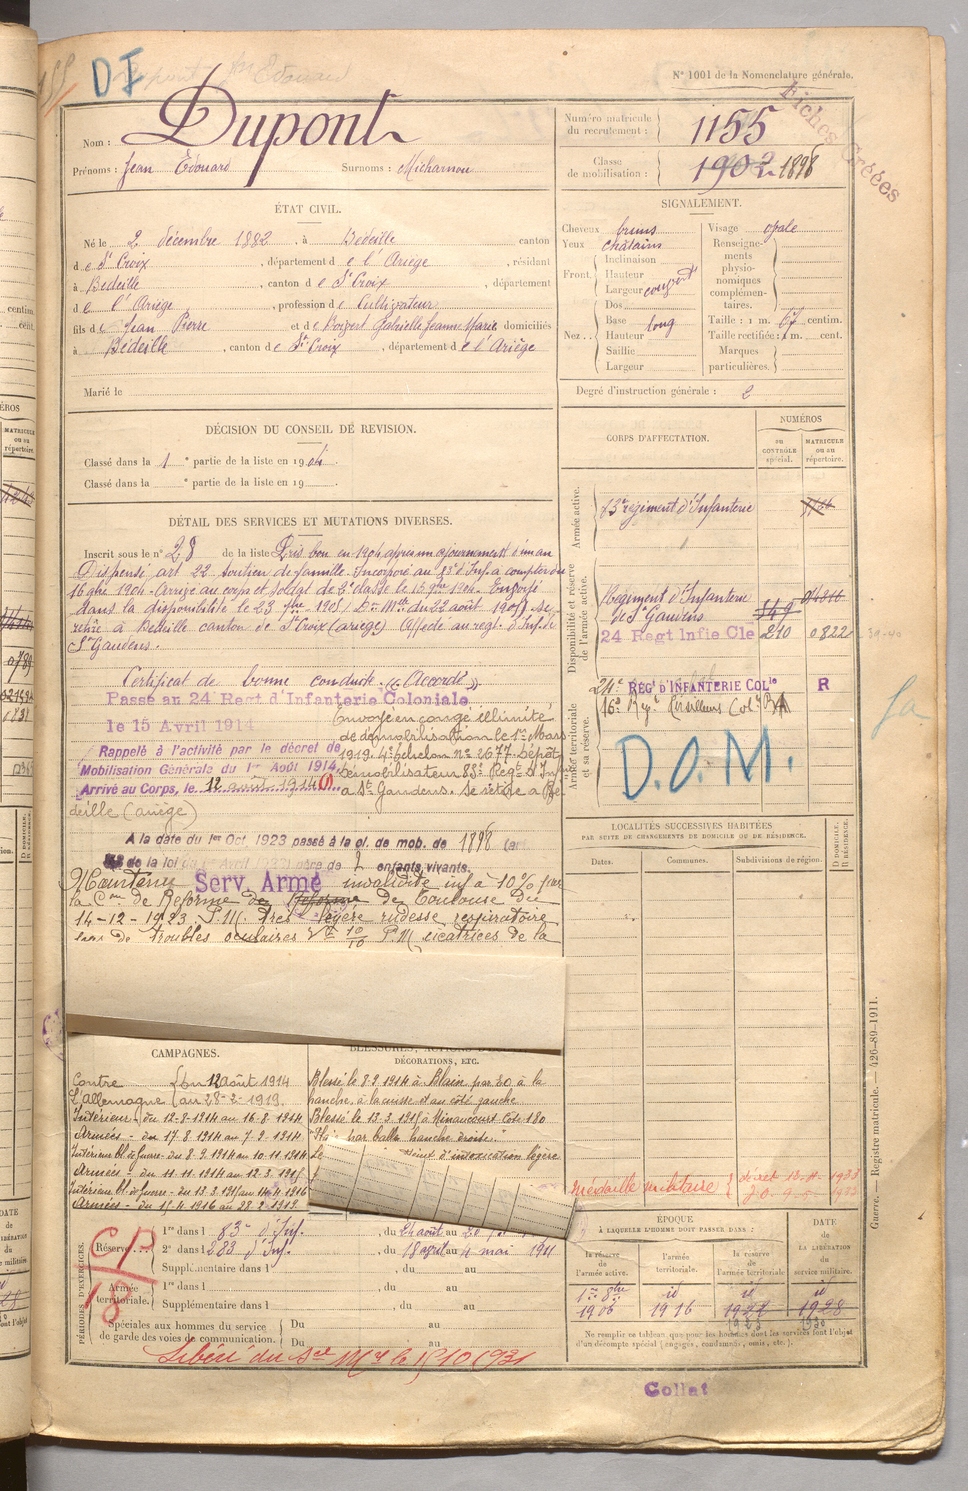 D F
N° 1001 de la Nomenclature générale.
Fiches Créées
Nom : Dupont
Prénoms : Jean Édouard Surnoms : Michamou
Numéro matricule du recrutement : 1155
Classe de mobilisation : 1902 1898
ÉTAT CIVIL.
Né le 2 décembre 1882, à Bédeille canton
de St Croix, département de l'Ariège, résidant
à Bédeille, canton de St Croix, département
de l'Ariège, profession de Cultivateur
fils de Jean Pierre et de Gabrielle Jeanne Marie domiciliés
à Bédeille, canton de St Croix, département de l'Ariège
Marié le
SIGNALEMENT.
Cheveux bruns
Yeux châtains
Front. Inclinaison
Hauteur
Largeur
Nez. Dos
Base
Hauteur long
Saillie
Largeur
Visage ovale
Renseignements physionomiques complémentaires.
Taille : 1 m. 67 centim.
Taille rectifiée : 1 m. cent.
Marques particulières.
Degré d'instruction générale : 2
DÉCISION DU CONSEIL DE REVISION.
Classé dans la 1e partie de la liste en 1904.
Classé dans la e partie de la liste en 19
DÉTAIL DES SERVICES ET MUTATIONS DIVERSES.
Inscrit sous le n° 28 de la liste Pris bon en 1904 après un ajournement d'un an
Dispensé art 22 soutien de famille. Incorporé au 83e d'Inf. à compter du
16 9bre 1904. Arrivé au corps et soldat de 2e classe le 16 9bre 1904. Envoyé
dans la disponibilité le 23 1905 Don Mlle du 22 août 1905 Se
retire à Bédeille canton de St Croix (ariège) Affecté au régt. d'Inf. de
St Gaudens.
Certificat de bonne conduite "Accordé"
Passé au 24 Régt d'Infanterie Coloniale
le 15 Avril 1914
Rappelé à l'activité par le décret de
Mobilisation Générale du 1er Août 1914
Arrivé au Corps, le 12 août 1914 (1)
Envoyé en congé illimité
de démobilisation le 1er Mars
1919 4e échelon n° 2677 Dépôt
démobilisateur 83e Régt d'Inf
à St Gaudens. Se retire à Bé
deille (ariège)
A la date du 1er Oct. 1923 passé à la cl. de mob. de 1898 (art
de la loi du 1er Avril 1923) père de 2 enfants vivants.
Maintenu Serv. Armé invalidité inf à 10% par
la Con de Réforme de Toulouse du
14-12-1923. P.M. très légère rudesse respiratoire
pas de troubles oculaires V= 10/10 P.M. cicatrices de la
CORPS D'AFFECTATION.
NUMÉROS
au CONTRÔLE spécial.
MATRICULE ou au répertoire.
Armée active.
83e régiment d'Infanterie
Disponibilité et réserve de l'armée active.
Régiment d'Infanterie
de St Gaudens 549
24 Regt Infie Cle 210 0822
Armée territoriale et sa réserve.
24e REGt D'INFANTERIE COLle R
16e Rgt Tirailleurs Col
D.O.M.
LOCALITÉS SUCCESSIVES HABITÉES
PAR SUITE DE CHANGEMENTS DE DOMICILE OU DE RÉSIDENCE.
Dates. Communes. Subdivisions de région. D DOMICILE. R RÉSIDENCE.
CAMPAGNES.
Contre du 12 août 1914
L'allemagne au 28-2-1919.
Intérieur du 12-8-1914 au 16-8-1914
Armées - du 17 8 1914 au 7 9 1914
Intérieur bl. de guerre - du 8 9 1914 au 10-11-1914
Armées - du 11-11-1914 au 12 3 1915
Intérieur bl. de guerre - du 13 3 1915 au 14-4-1916
Armées - du 15 4 1916 au 28 2 1919.
BLESSURES, ACTIONS D'ÉCLAT
DÉCORATIONS, ETC.
Blessé le 8-9 1914 à Blain par EO à la
hanche, à la cuisse et au côté gauche
Blessé le 13-3-1915 à Minaucourt Côte 180
"Pl par balle hanche droite."
Le d'intoxication légère
Médaille militaire décret
PÉRIODES D'EXERCICES.
Réserve
1re dans l 83e d'Inf. , du 24 août au
2e dans l 283 d'Inf. , du 18 avril au 4 mai 1911
Supplémentaire dans l , du au
Armée territoriale.
1re dans l , du au
Supplémentaire dans l , du au
Spéciales aux hommes du service de garde des voies de communication.
Du au
Du au
CP
18
Libéré du Sce Mre le 15 10 1931
ÉPOQUE
À LAQUELLE L'HOMME DOIT PASSER DANS :
la réserve de l'armée active.
l'armée territoriale.
la réserve de l'armée territoriale
DATE DE LA LIBÉRATION du service militaire.
1er 8bre id id id
1906 1916 1922 1928
1923 1930
Ne remplir ce tableau que pour les hommes dont les services font l'objet
d'un décompte spécial (engagés, condamnés, omis, etc.).
Collat
Guerre. — Registre matricule. — 426-89-1911.